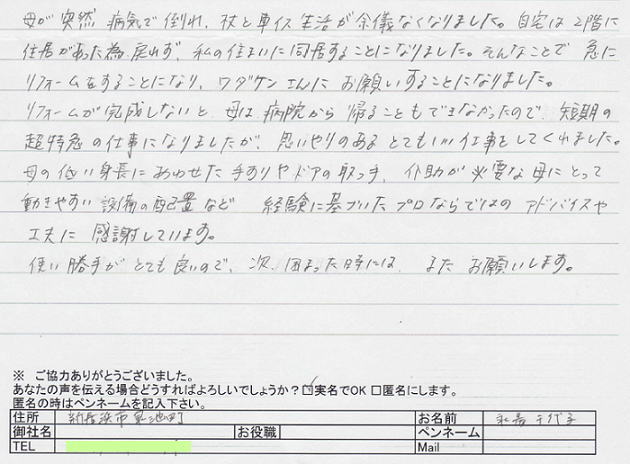 母が突然 病気で倒れ、杖と車イス生活が余儀なくなりました。自宅は2階に
住居があった為、戻れず、私の住まいに同居することになりました。そんなことで 急に
リフォームをすることになり、ワダケンさんに お願いすることになりました。
リフォームが完成しないと、母は病院から 帰ることもできなかったので、短期の
超特急の仕事になりましたが、思いやりのある とてもいい仕事をしてくれました。
母の低い身長にあわせた手すりやドアの取っ手、介助が必要な母にとって
動きやすい設備の配置など 経験に基づいたプロならではの アドバイスや
工夫に 感謝しています。
使い勝手が とても良いので、次、困まった時には、また お願いします。
※ ご協力ありがとうございました。
あなたの声を伝える場合どうすればよろしいでしょうか？☑実名でOK □匿名にします。
匿名の時はペンネームを記入下さい。
住所 新居浜市東池町 お名前 永易千代子
御社名 お役職 ペンネーム
TEL Mail